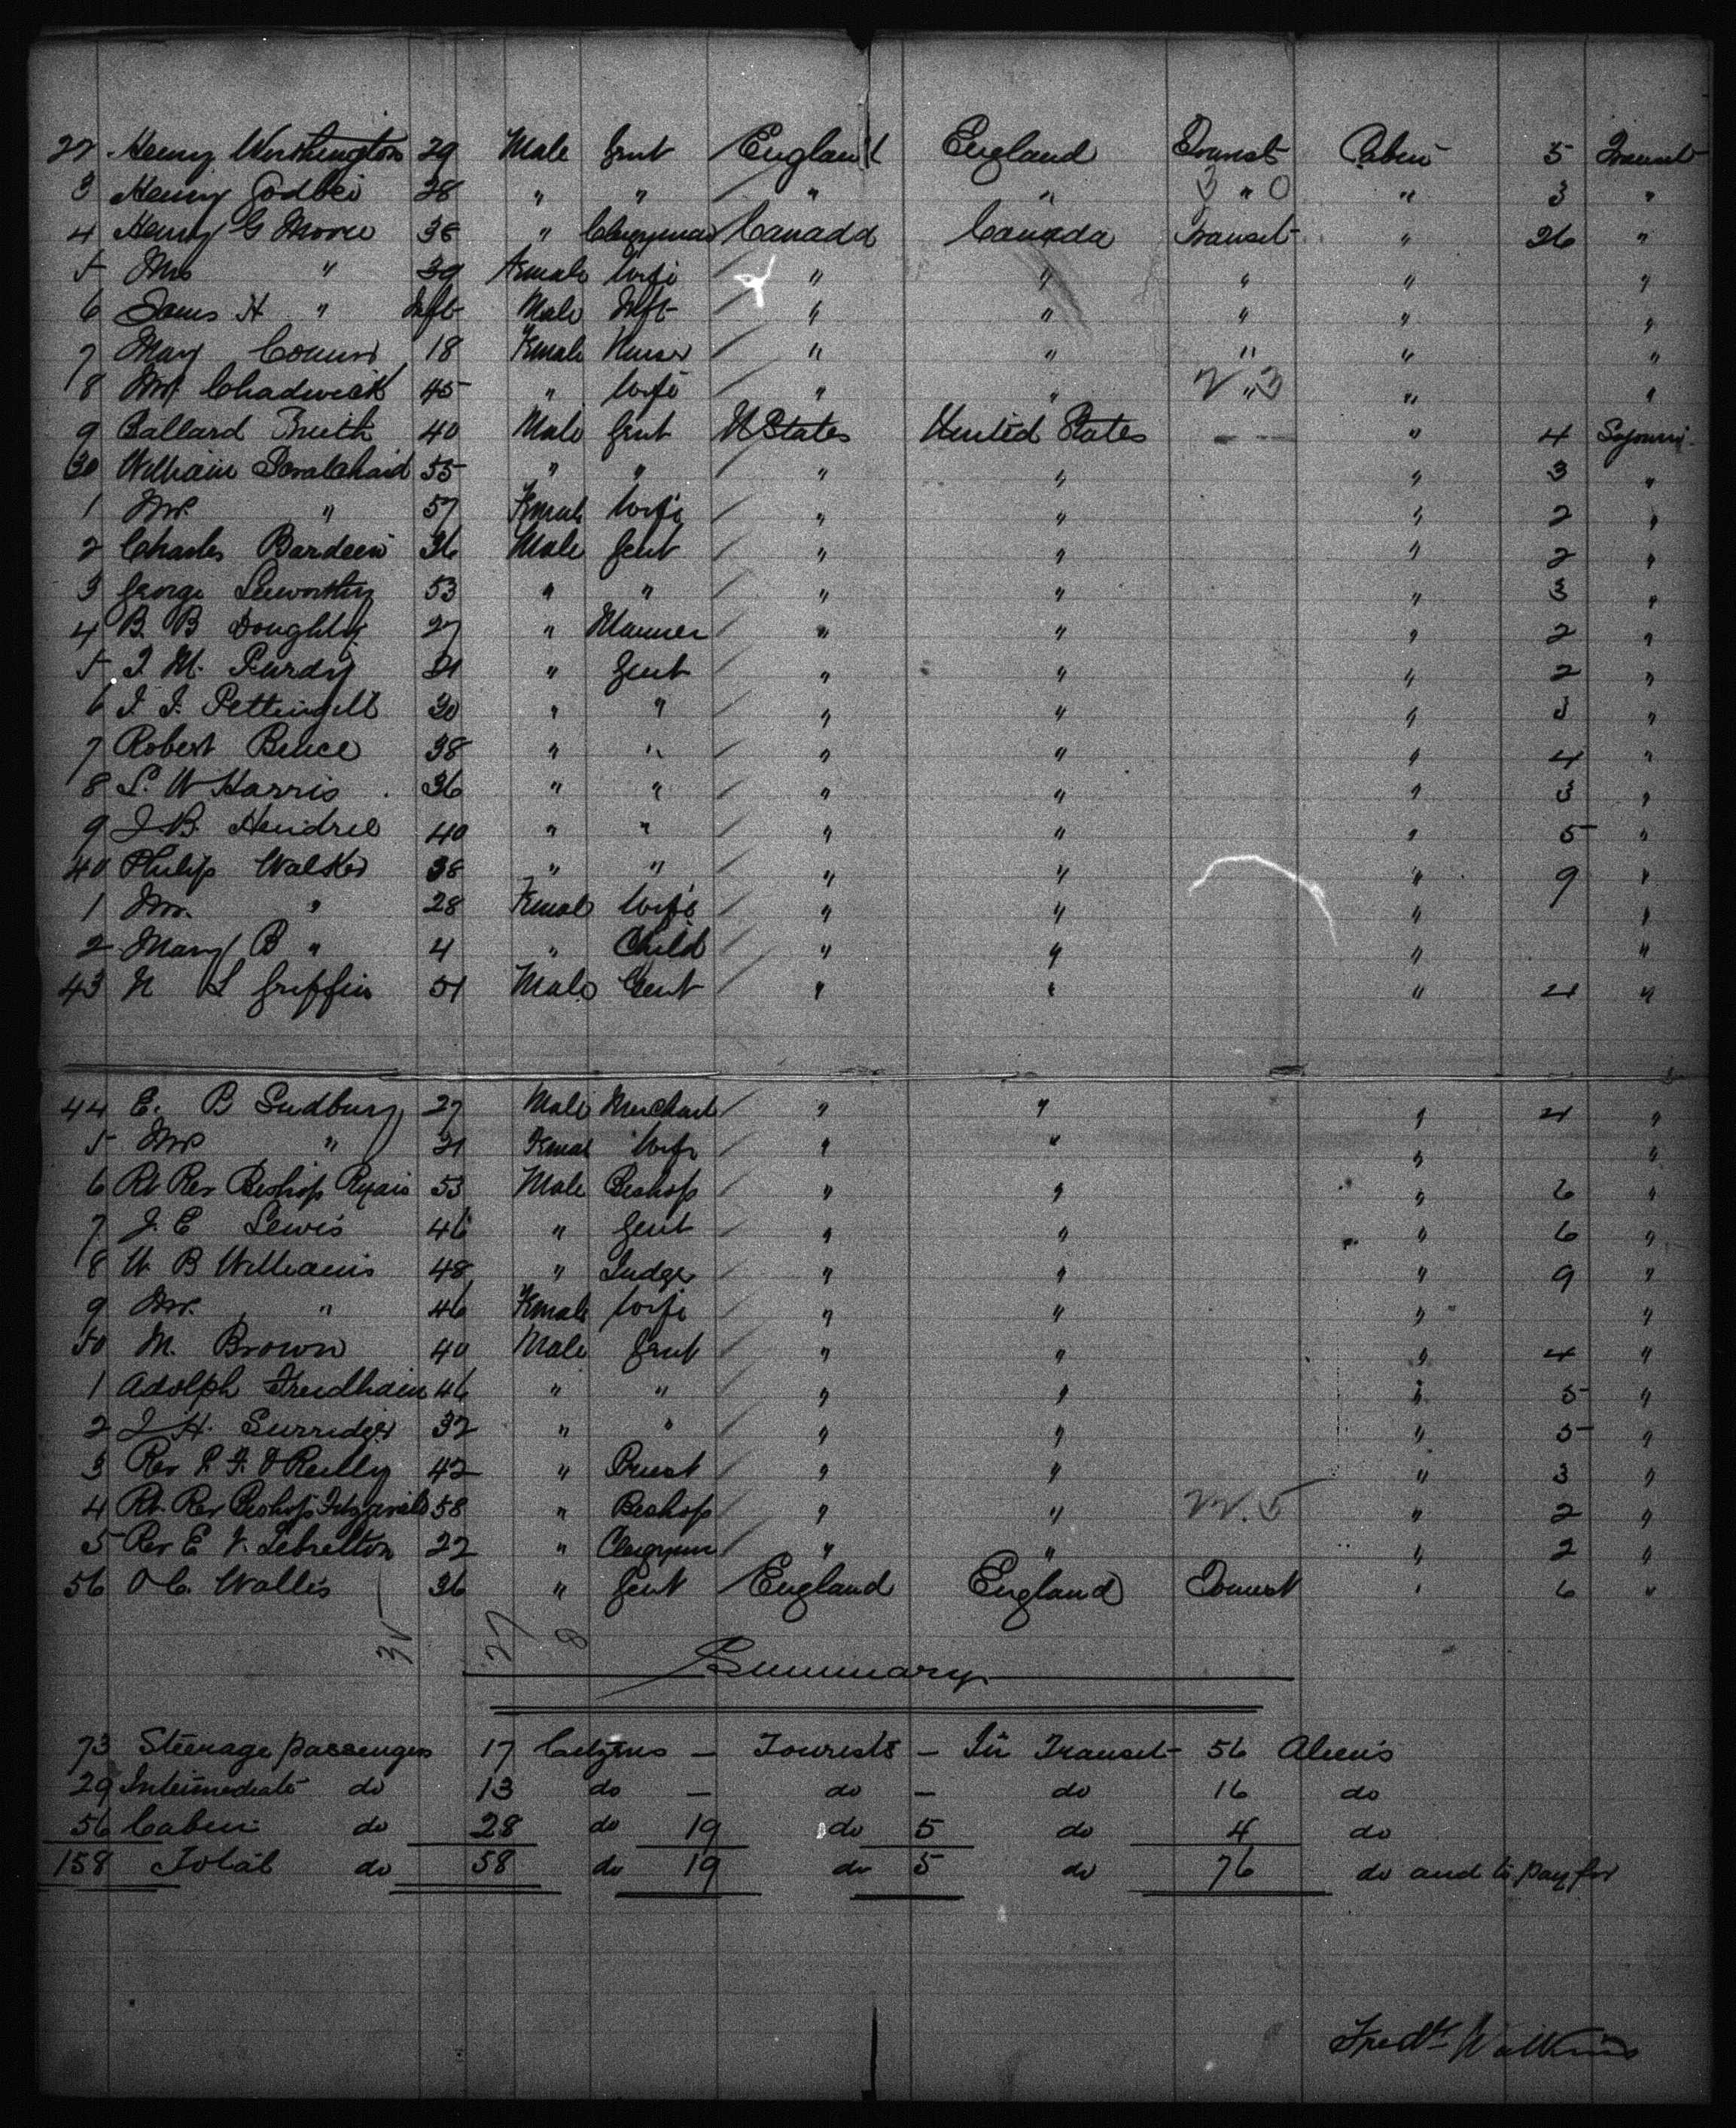 27 Henry Worthington 29 Male Gent England England Transit Cabin 5 Transit
3 Henry Godbei 28 " " " " 3 " 0 " 3 "
4 Henry G Moore 38 " Clergyman Canada Canada Transit " 26 "
5 Mrs " 39 Female Wife " " " " "
6 James H " Inft Male Inft " " " " "
7 Mary 18 Female Nurse " " " " "
8 Mrs Chadwick 45 " Wife " " " " "
9 Ballard Smith 40 Male Gent U States United States " 4 Sojourn
30 William 55 " " " " " 3 "
1 Mrs " 57 Female Wife " " " 2 "
2 Charles Bardeen 36 Male Gent " " " 2 "
3 George Seworthy 53 " " " " " 3 "
4 B. B Doughty 27 " " " " 2 "
5 J. M. Purdy 21 " Gent " " " 2 "
6 J. J. Pettingill 30 " " " " " 3 "
7 Robert Bruce 38 " " " " " 4 "
8 S. W Harris 36 " " " " " 3 "
9 J. B. Hendrie 40 " " " " " 5 "
40 Philip Walker 38 " " " " " 9 "
1 Mrs. " 28 Female Wife " " " "
2 Mary B " 4 " Child " " " "
43 N S Griffin 51 Male Gent " " " 4 "
44 E. B Sudbury 27 Male Merchant " " " 4 "
5 Mrs " 21 Female Wife " " " "
6 Rt Rev Bishop Ryan 53 Male Bishop " " " 6 "
7 J. E Lewis 46 " Gent " " " 6 "
8 W B Williams 48 " Judge " " " 9 "
9 Mrs. " 46 Female Wife " " " "
50 M. Brown 40 Male Gent " " " 4 "
1 Adolph 46 " " " " " 5 "
2 J H. Surridge 32 " " " " " 5 "
3 Rev P. F. O Reilly 42 " Priest " " " 3 "
4 Rt. Rev Bishop Fitzgerald 58 " Bishop " " " 2 "
5 Rev E V. Lebretton 22 " Clergyman " " " 2 "
56 O C. Wallis 36 " Gent England England Transit " 6 "
27 8
Summary
73 Steerage passengers 17 Citizens - Tourists - In Transit - 56 Aliens
29 Intermediate do 13 do - do - do 16 do
56 Cabin do 28 do 19 do 5 do 4 do
158 Total do 58 do 19 do 5 do 76 do and to pay for
Fredk Watkins